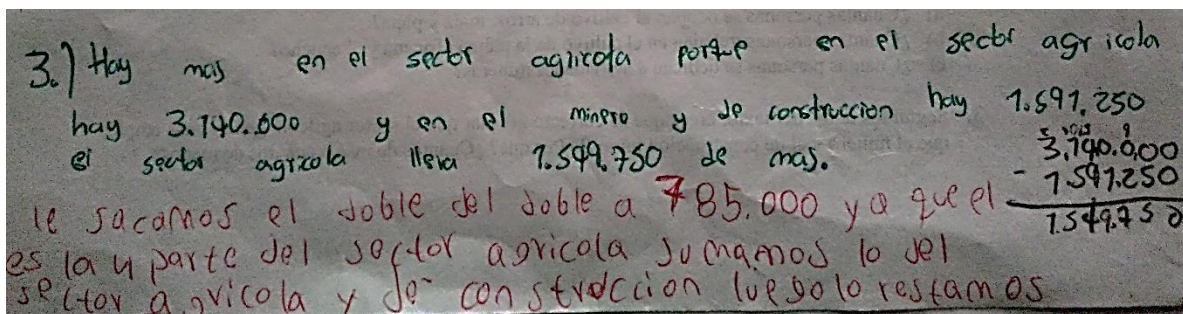 3.) Hay mas en el sector agricola porque en el sector agricola
hay 3.140.000 y en el minero y de construccion hay 1.591.250
el sector agricola lleva 1.549.750 de mas.
3.140.000
- 1.591.250
1.549.750
le sacamos el doble del doble a 785.000 ya que el
es la 4 parte del sector agricola sumamos lo del
sector agricola y de construccion luego lo restamos